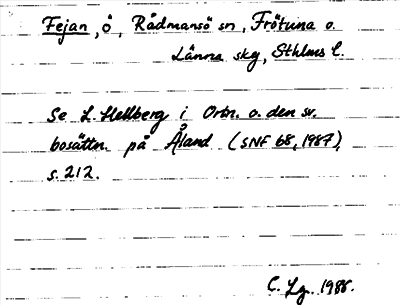 Fejan, ö, Rådmansö sn, Frötuna o.
Länna skg, Sthlms l.
Se L. Hellberg i Ortn. o. den sv.
bosättn. på Åland (SNF 68, 1987),
s. 212.
C. Lg. 1988.